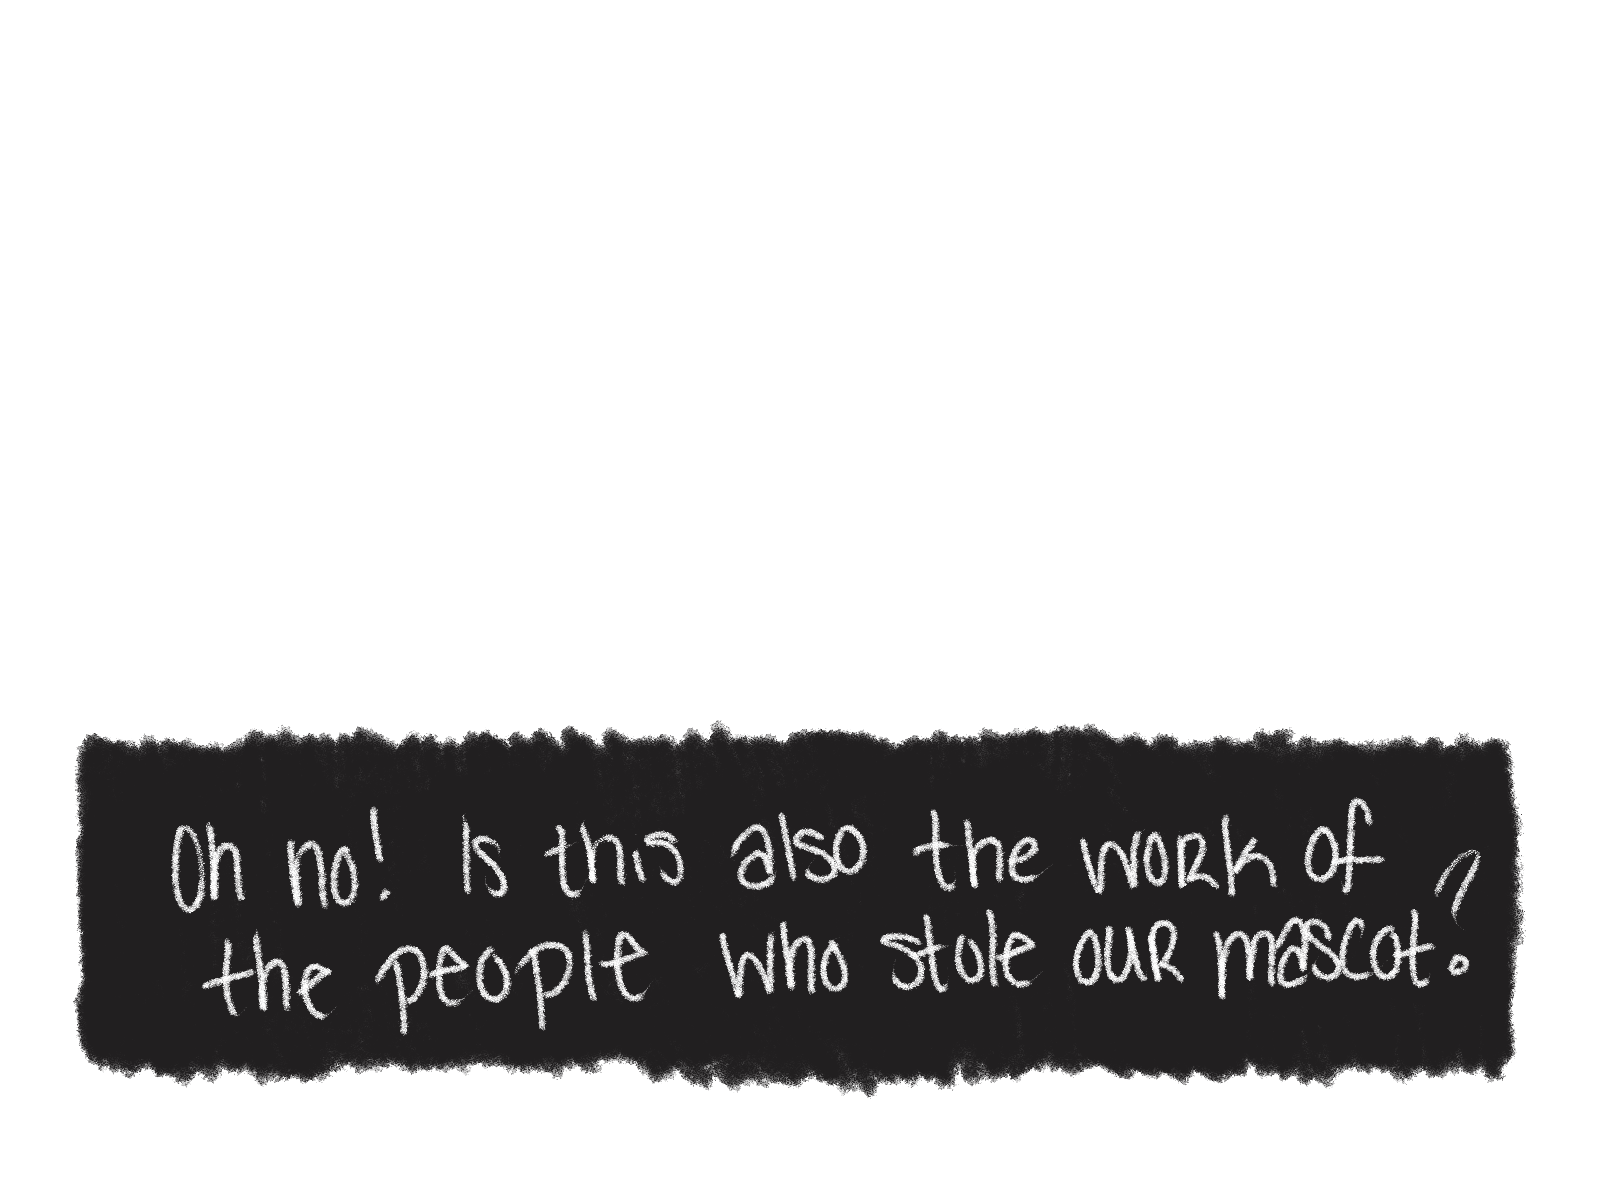 Oh no! Is this also the work of
the people who stole our mascot?